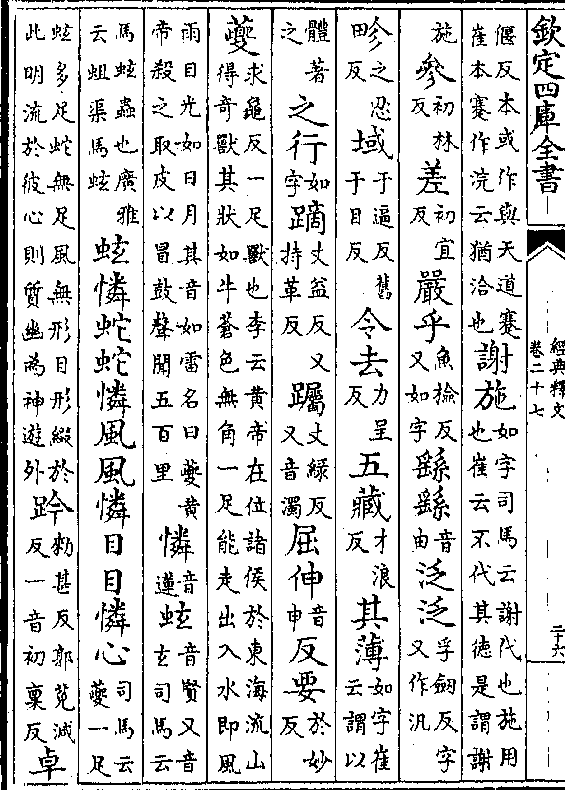 欽定四庫全書
經典釋文
卷二十七
二十六
偃反本或作與天道蹇
崔本蹇作浣云猶洽也
謝施
如字司馬云謝代也施用
也崔云不代其德是謂謝
施
參
初林
反
差
初宜
反
嚴乎
魚檢反
又如字
繇繇
音
由
泛泛
孚劒反字
又作汎
畛
之忍
反
域
于逼反舊
于目反
令去
力呈
反
五藏
才浪
反
其薄
如字崔
云謂以
體著
之
之行
如
字
蹢
丈益反又
持革反
䠱
丈緑反
又音濁
屈伸
音
申
反要
於妙
反
夔
求龜反一足獸也李云黄帝在位諸侯於東海流山
得奇獸其狀如牛蒼色無角一足能走出入水即風
雨目光如日月其音如雷名曰夔黄
帝殺之取皮以冒鼓聲聞五百里
憐
音
蓮
蚿
音賢又音
玄司馬云
馬蚿蟲也廣雅
云蛆渠馬蚿
蚿憐蛇蛇憐風風憐目目憐心
司馬云
夔一足
蚿多足蛇無足風無形目形綴於
此明流於彼心則質幽為神遊外
趻
勑甚反郭莬減
反一音初稟反
卓